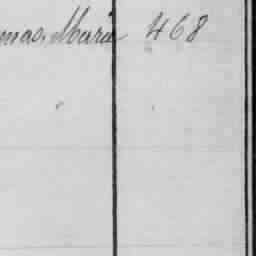 mas, Marie 468